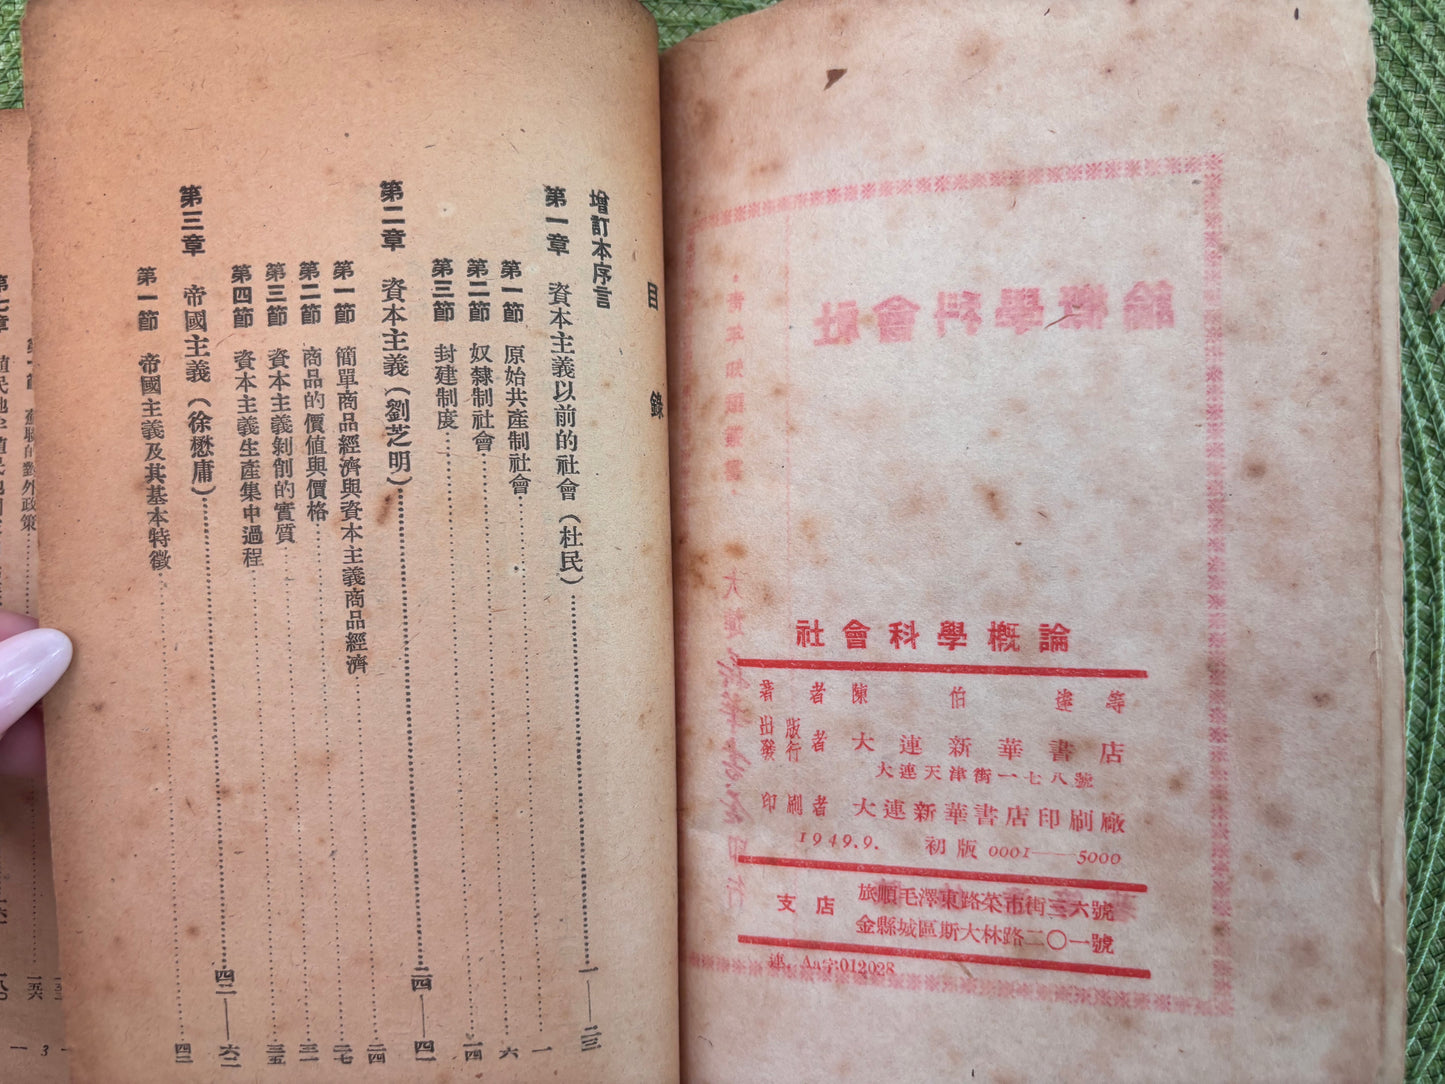 社會科學概論
著者 陳伯達等
出版
發行者 大連新華書店
大連天津街一七八號
印刷者 大連新華書店印刷廠
1949.9. 初版 0001——5000
支店 旅順毛澤東路菜市街三六號
金縣城區斯大林路二〇一號
連.Aa字:012028
社會科學概論
目錄
增訂本序言
第一章 資本主義以前的社會(杜民)……一——二三
第一節 原始共產制社會……一
第二節 奴隸制社會……六
第三節 封建制度……一四
第二章 資本主義(劉芝明)……二四——四一
第一節 簡單商品經濟與資本主義商品經濟……二四
第二節 商品的價值與價格……二七
第三節 資本主義剝削的實質……三一
第四節 資本主義生產集中過程……三五
第三章 帝國主義(徐懋庸)……四二——六二
第一節 帝國主義及其基本特徵……四二
蘇聯的對外政策……
一五六
— 3 —